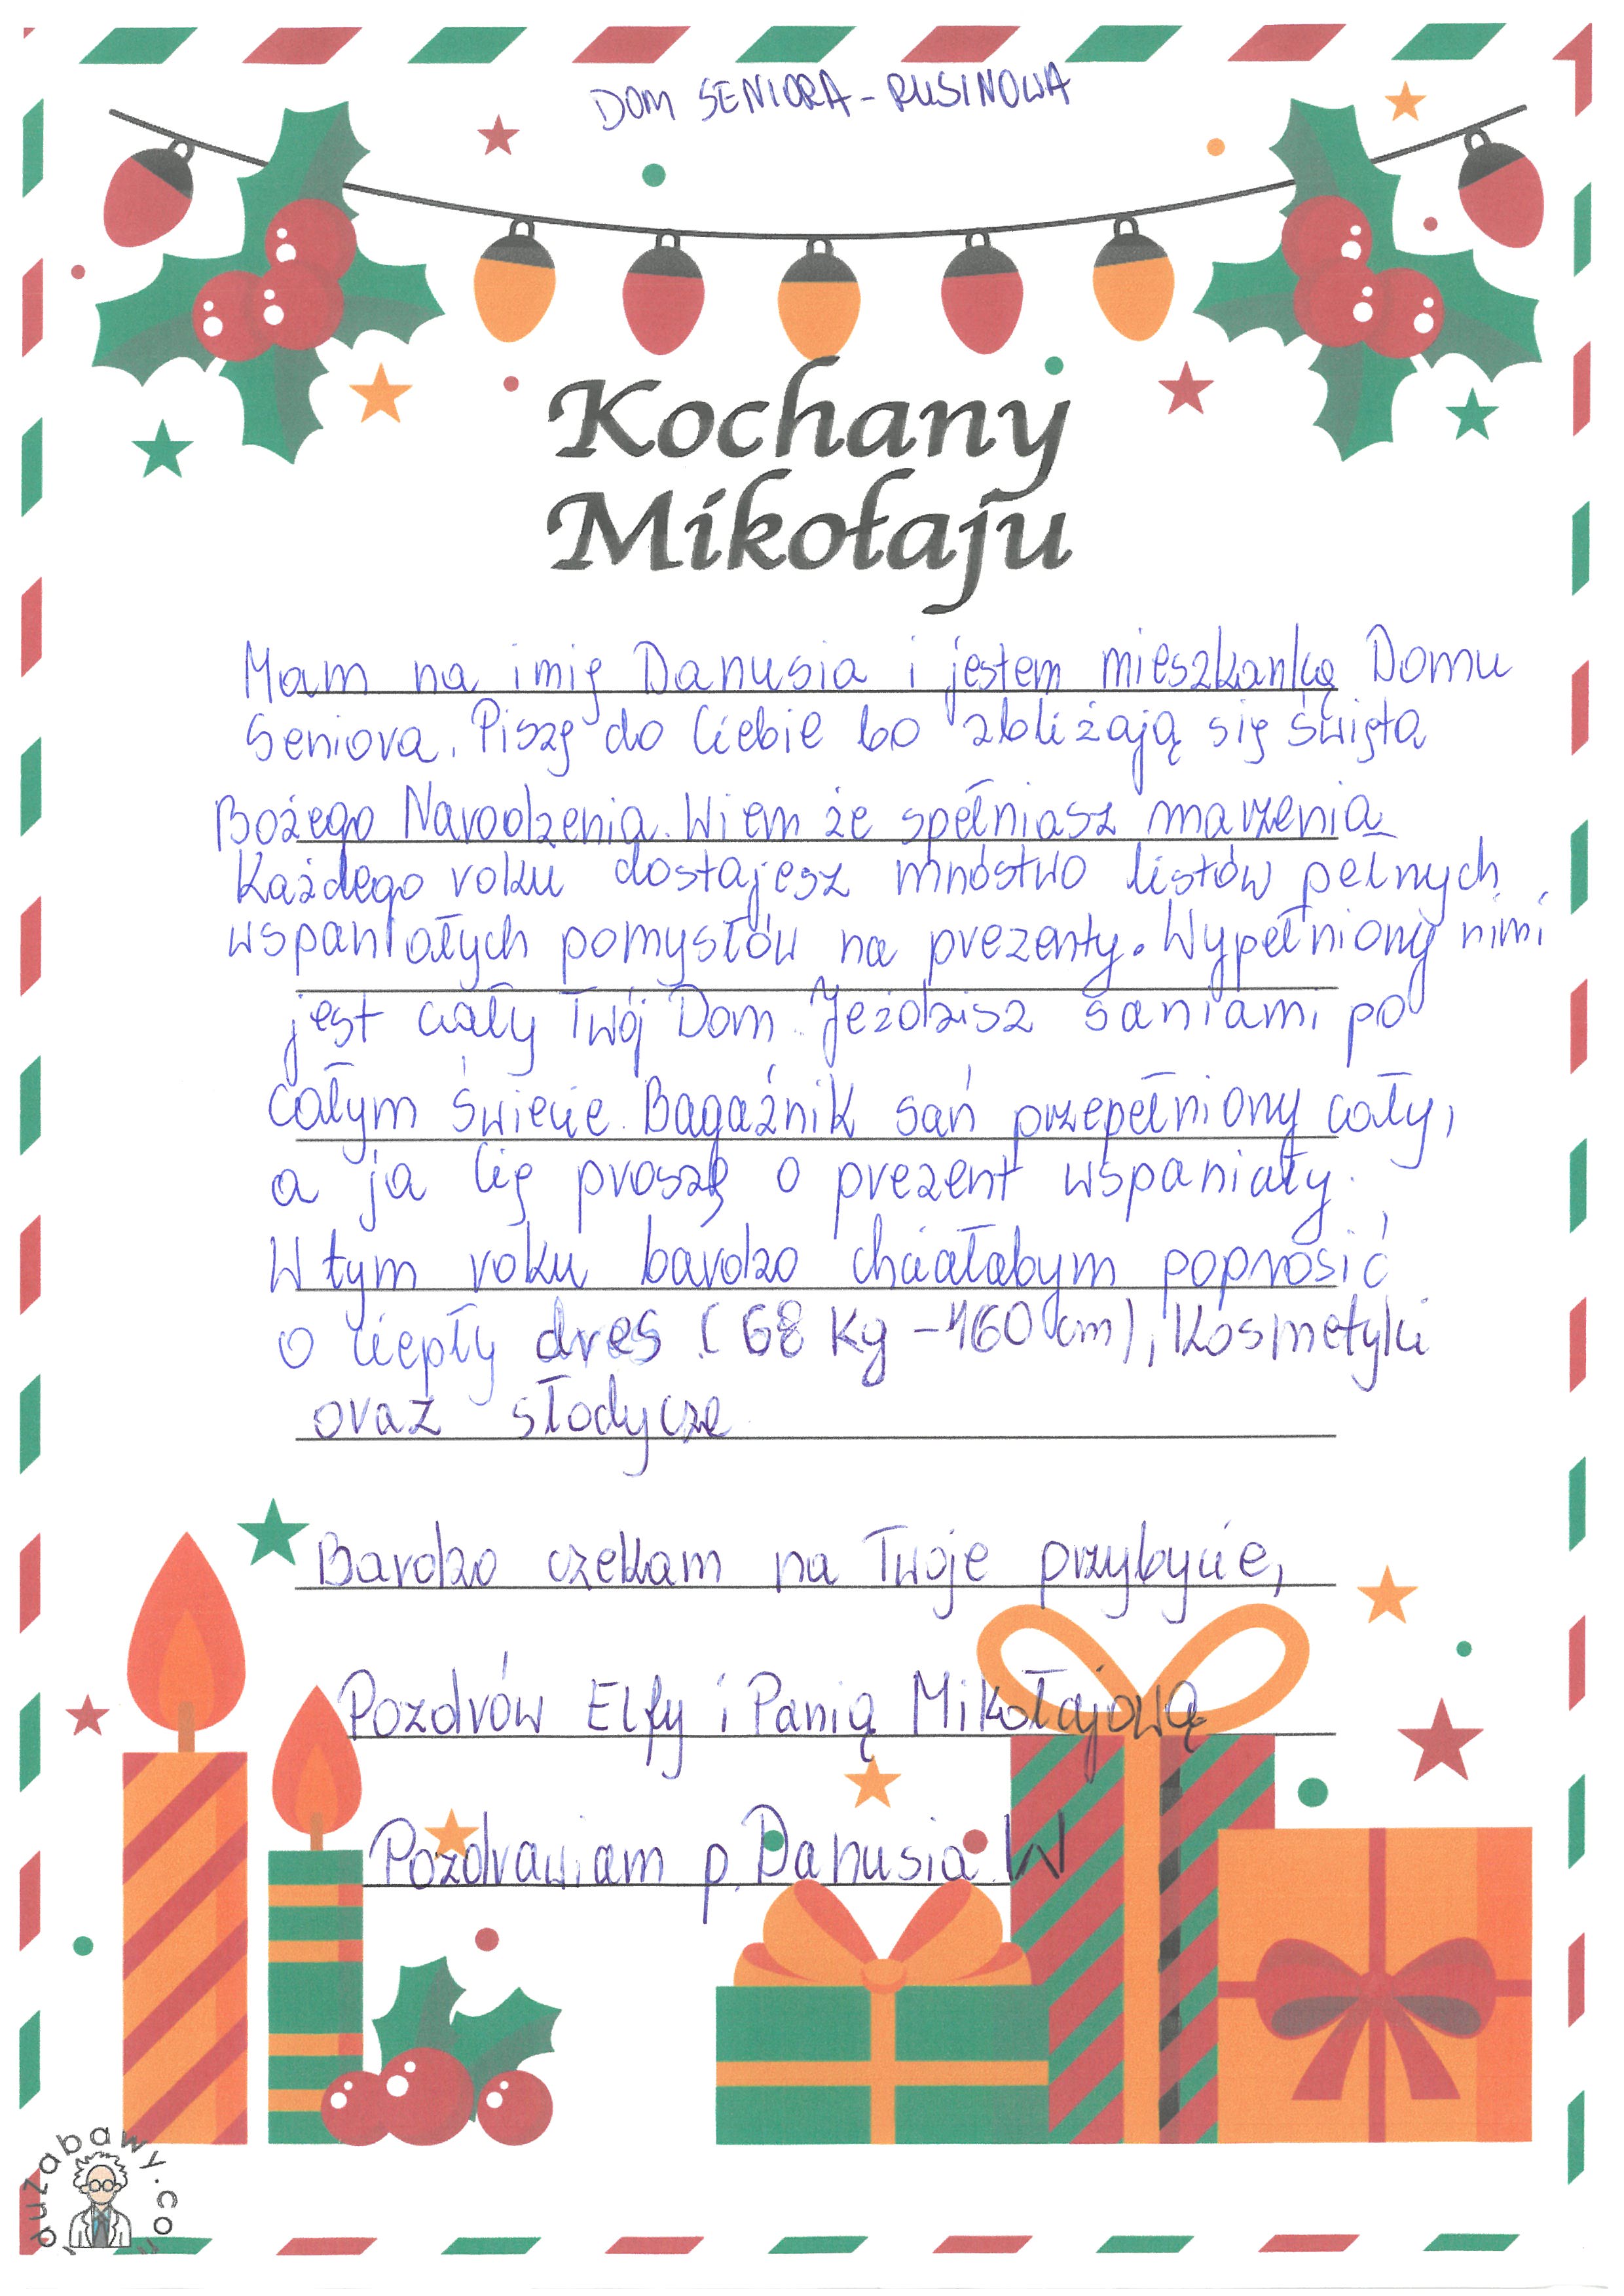 DOM SENIORA - RUSINOWA
Kochany
Mikołaju
Mam na imię Danusia i jestem mieszkanką Domu
Seniora. Piszę do Ciebie bo zbliżają się święta
Bożego Narodzenia. Wiem że spełniasz marzenia
Każdego roku dostajesz mnóstwo listów pełnych
wspaniałych pomysłów na prezenty. Wypełniony nimi
jest cały Twój Dom. Jeździsz saniami po
całym świecie. Bagaźnik sań przepełniony cały,
a ja Cię proszę o prezent wspaniały.
W tym roku bardzo chciałabym poprosić
o ciepły dres (68 Kg - 160 cm), Kosmetyki
oraz słodycze
Bardzo czekam na Twoje przybycie,
Pozdrów Elfy i Panią Mikołajową
Pozdrawiam p. Danusia. W